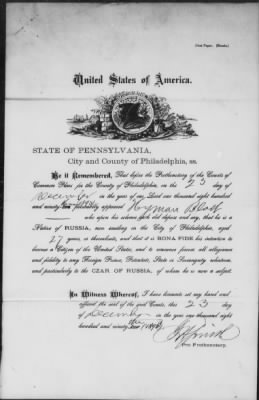 First Paper. (Russia.)
United States of America.
STATE OF PENNSYLVANIA,
City and County of Philadelphia, ss.
Be it Remembered, That before the Prothonotary of the Courts of
Common Pleas for the County of Philadelphia, on the 23 day
of December in the year of our Lord one thousand eight hundred
and ninety personally appeared Hyman
who upon his solemn oath did depose and say, that he is a
Native of RUSSIA, now residing in the City of Philadelphia, aged
27 years, or thereabouts, and that it is BONA FIDE his intention to
become a Citizen of the United States, and to renounce forever all allegiance
and fidelity to any Foreign Prince, Potentate, State or Sovereignty whatever,
and particularly to the CZAR OF RUSSIA, of whom he is now a subject.
In Witness Whereof, I have hereunto set my hand and
affixed the seal of the said Courts, this 23 day
of December in the year one thousand eight
hundred and ninety
Pro Prothonotary.